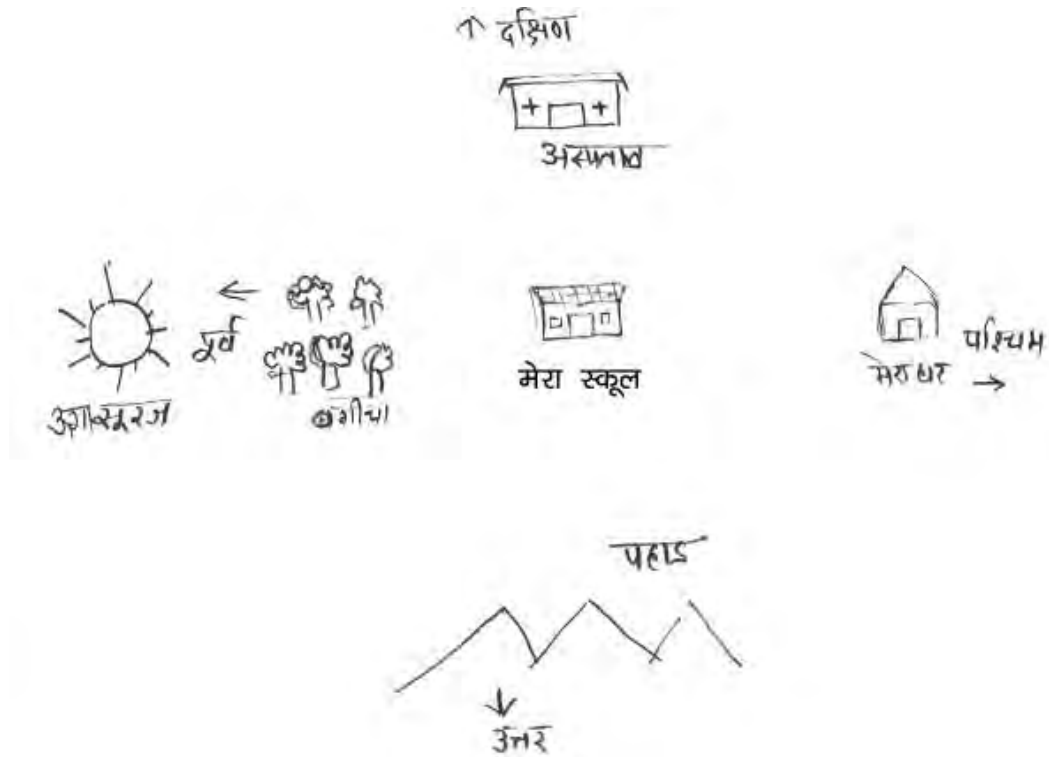 ↑ दक्षिण
अस्पताल
← पूर्व
उगा सूरज
बगीचा
मेरा स्कूल
मेरा घर
पश्चिम →
पहाड
↓
उत्तर